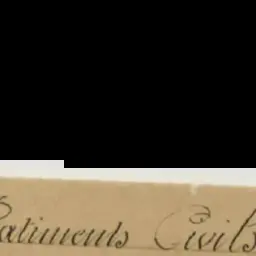 Batiments Civils